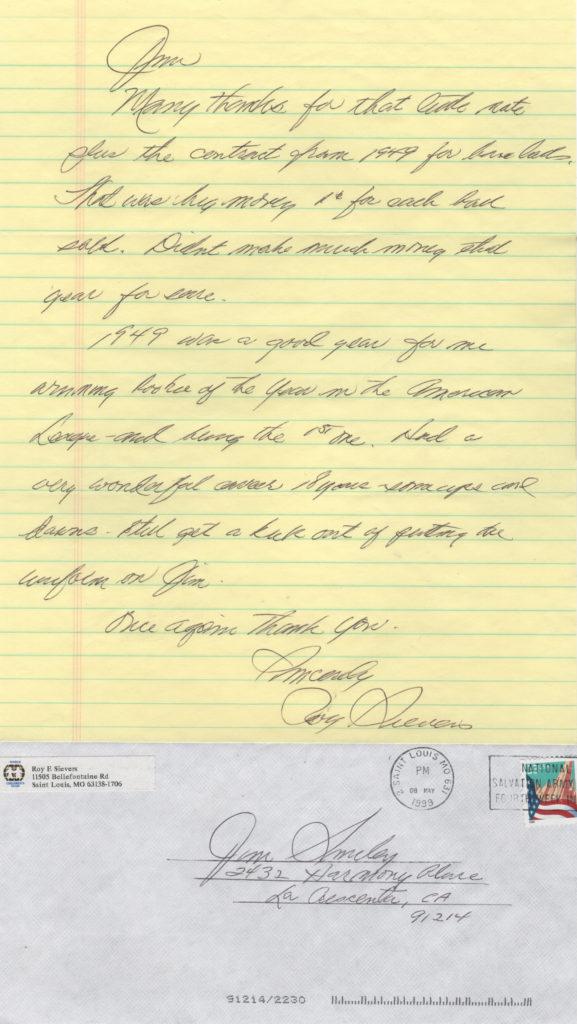 Jim
Many thanks for that little note
plus the contract from 1949 for base balls.
That was big money 1¢ for each ball
sold. Didnt make much money that
year for sure.
1949 was a good year for me
winning Rookie of the Year in the American
League - and being the 1st one. Had a
very wonderful career 18 years - some ups and
downs. Still get a kick out of putting the
uniform on Jim.
Once again Thank You.
Sincerely
Roy Sievers
Roy E Sievers
11505 Bellefontaine Rd
Saint Louis, MO 63138-1706
SAINT LOUIS MO 631
PM
08 MAY
1999
NATIONAL
SALVATION ARMY
WEEK
Jim Smiley
2432 Harmony Place
La Crescenta, CA
91214
91214/2230